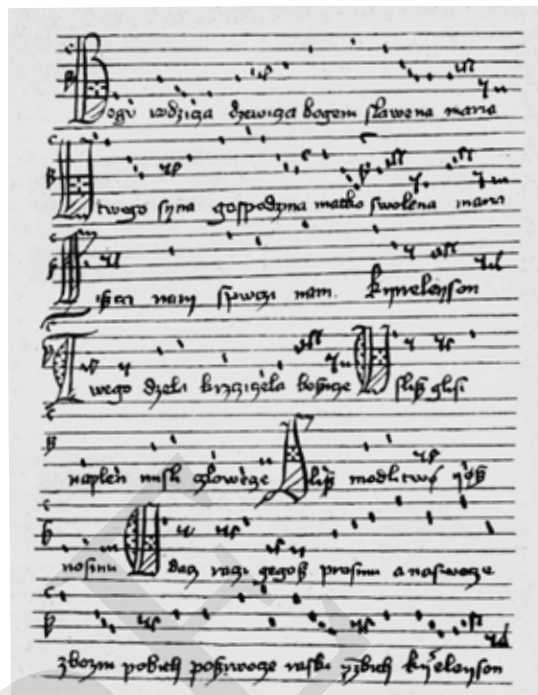 Bogu rodzicza dzewicza bogem slawena maria
U twego syna gospodzina matko swolena maria
Sziszczi nam spwczi nam Kyrieleyson
Twego dzela krzcziczela bozicze Uslisz glosi
naplen misli czlowecze Slisz modlitwo yosz
nosimi Oddacz raczi gegosz prosimi a naswecze
zbozni pobith posziwocze raski kyrieleyson